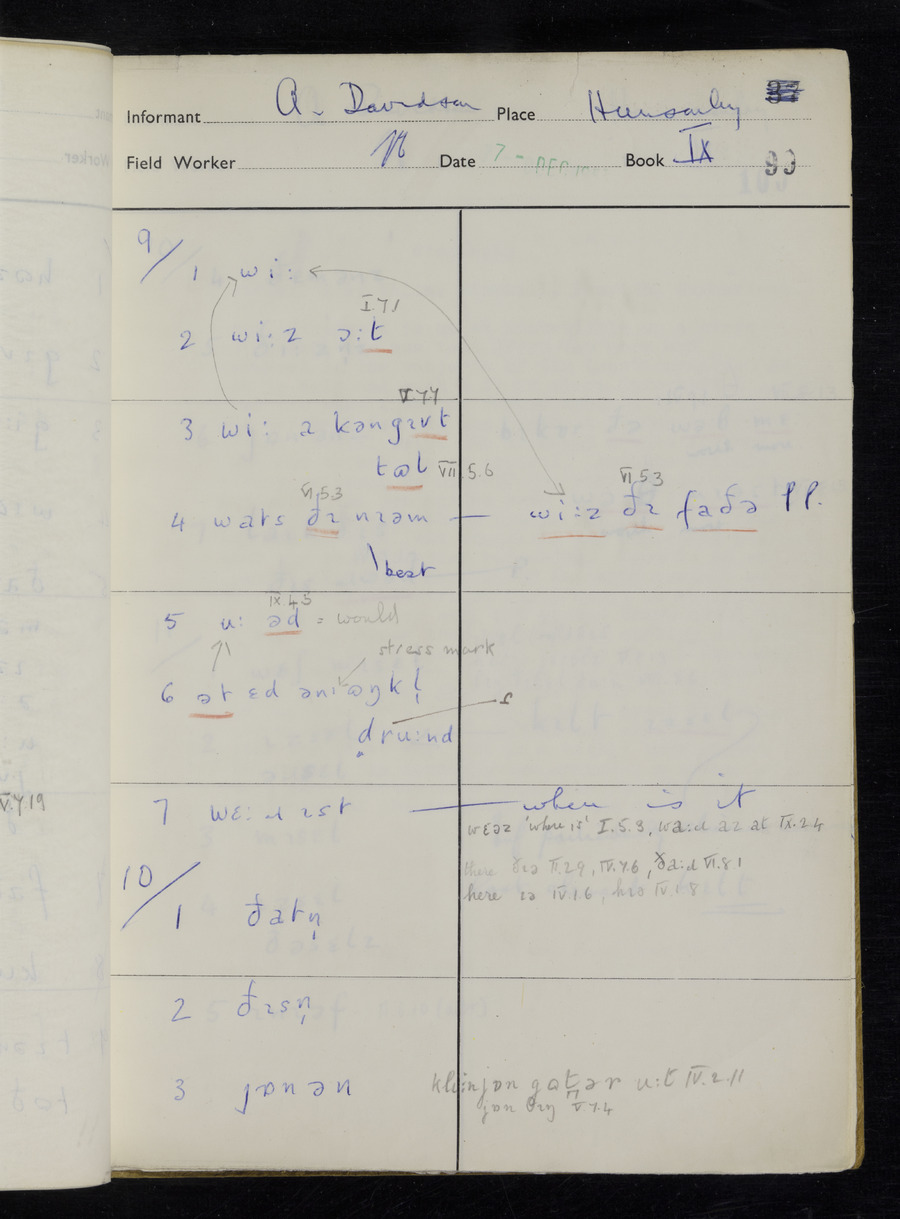 Informant A. Davidson Place Hunsonby
Field Worker Date 7 - Book IX 99
9/
1 wi:
I.7.1
2 wi:z ə:t
V.7.7
3 wi: ə kəngɪvt
tɷl VII.5.6
VI.5.3 VI.5.3
4 wats ðɪ nɪəm — wi:z ðɪ faðə pp.
best
IX.4.5
5 u: əd = would
stress mark
6 ət ɛd əniˈɷŋk!
dru:nd
7 wɛ:ɹ ɪst — when is it
wɛəz 'where is' I.5.3, wa:ɹ az at IX.2.4
there ðɪə II.2.9, IV.7.6, ða:ɹ VI.8.1
here ɪə IV.1.6, hɪə IV.1.8
10/
1 ðatn̩
2 ðɪsn̩
3 jɒnən kli:njɒn gɑtər u:t IV.2.11
jɒn θɪŋ V.7.4
V.7.19